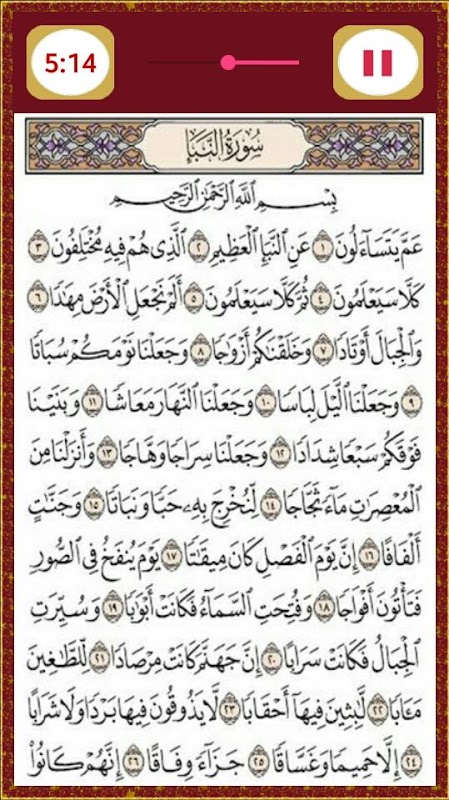 5:14
سُورَةُ النَّبَإِ
بِسْمِ اللَّهِ الرَّحْمَٰنِ الرَّحِيمِ
عَمَّ يَتَسَاءَلُونَ ١ عَنِ النَّبَإِ الْعَظِيمِ ٢ الَّذِي هُمْ فِيهِ مُخْتَلِفُونَ ٣
كَلَّا سَيَعْلَمُونَ ٤ ثُمَّ كَلَّا سَيَعْلَمُونَ ٥ أَلَمْ نَجْعَلِ الْأَرْضَ مِهَٰدًا ٦
وَالْجِبَالَ أَوْتَادًا ٧ وَخَلَقْنَٰكُمْ أَزْوَٰجًا ٨ وَجَعَلْنَا نَوْمَكُمْ سُبَاتًا
٩ وَجَعَلْنَا الَّيْلَ لِبَاسًا ١٠ وَجَعَلْنَا النَّهَارَ مَعَاشًا ١١ وَبَنَيْنَا
فَوْقَكُمْ سَبْعًا شِدَادًا ١٢ وَجَعَلْنَا سِرَاجًا وَهَّاجًا ١٣ وَأَنزَلْنَا مِنَ
الْمُعْصِرَٰتِ مَاءً ثَجَّاجًا ١٤ لِّنُخْرِجَ بِهِۦ حَبًّا وَنَبَاتًا ١٥ وَجَنَّٰتٍ
أَلْفَافًا ١٦ إِنَّ يَوْمَ الْفَصْلِ كَانَ مِيقَٰتًا ١٧ يَوْمَ يُنفَخُ فِي الصُّورِ
فَتَأْتُونَ أَفْوَاجًا ١٨ وَفُتِحَتِ السَّمَاءُ فَكَانَتْ أَبْوَٰبًا ١٩ وَسُيِّرَتِ
الْجِبَالُ فَكَانَتْ سَرَابًا ٢٠ إِنَّ جَهَنَّمَ كَانَتْ مِرْصَادًا ٢١ لِّلطَّٰغِينَ
مَـَٔابًا ٢٢ لَّٰبِثِينَ فِيهَا أَحْقَابًا ٢٣ لَّا يَذُوقُونَ فِيهَا بَرْدًا وَلَا شَرَابًا
٢٤ إِلَّا حَمِيمًا وَغَسَّاقًا ٢٥ جَزَاءً وِفَاقًا ٢٦ إِنَّهُمْ كَانُوا